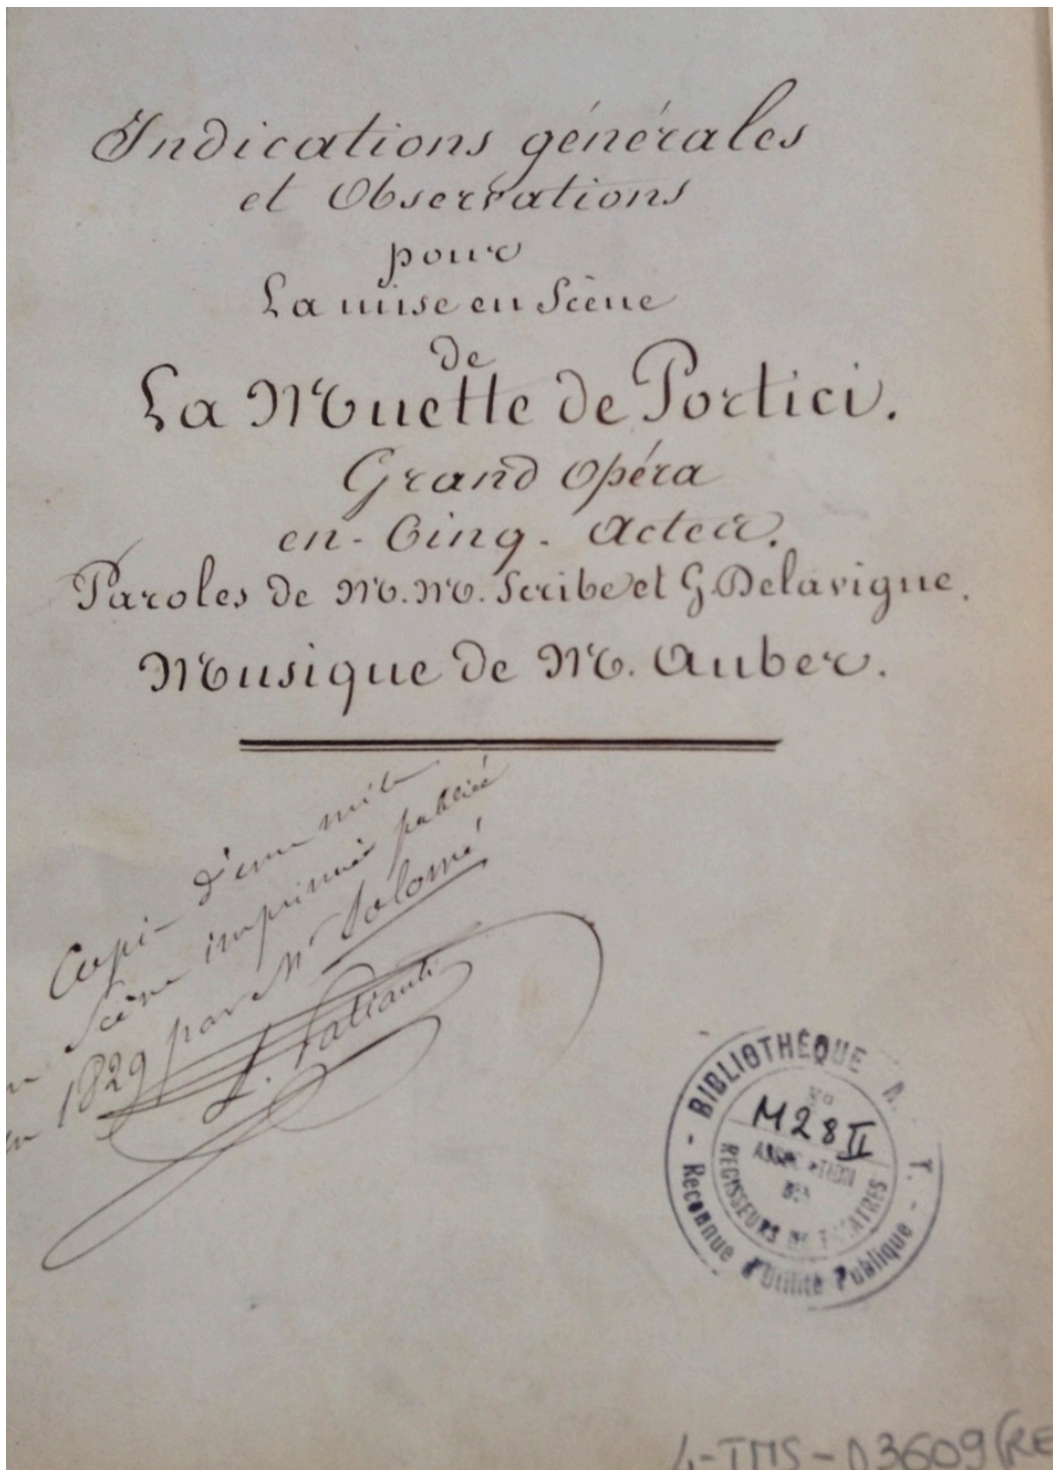 Indications générales
et Observations
pour
La mise en Scène
de
La Muette de Portici.
Grand Opéra
en-Cinq-Actes.
Paroles de M.M. Scribe et G. Delavigne.
Musique de M. Auber.
Copie d'une mise
en Scène imprimée publiée
en 1829 par Mr Solomé
L. Palianti
BIBLIOTHÈQUE A. T.
No
M28 II
ASSOCIATION
DES
REGISSEURS DE THEATRES
Reconnue d'Utilité Publique
4-TMS-03609(RE